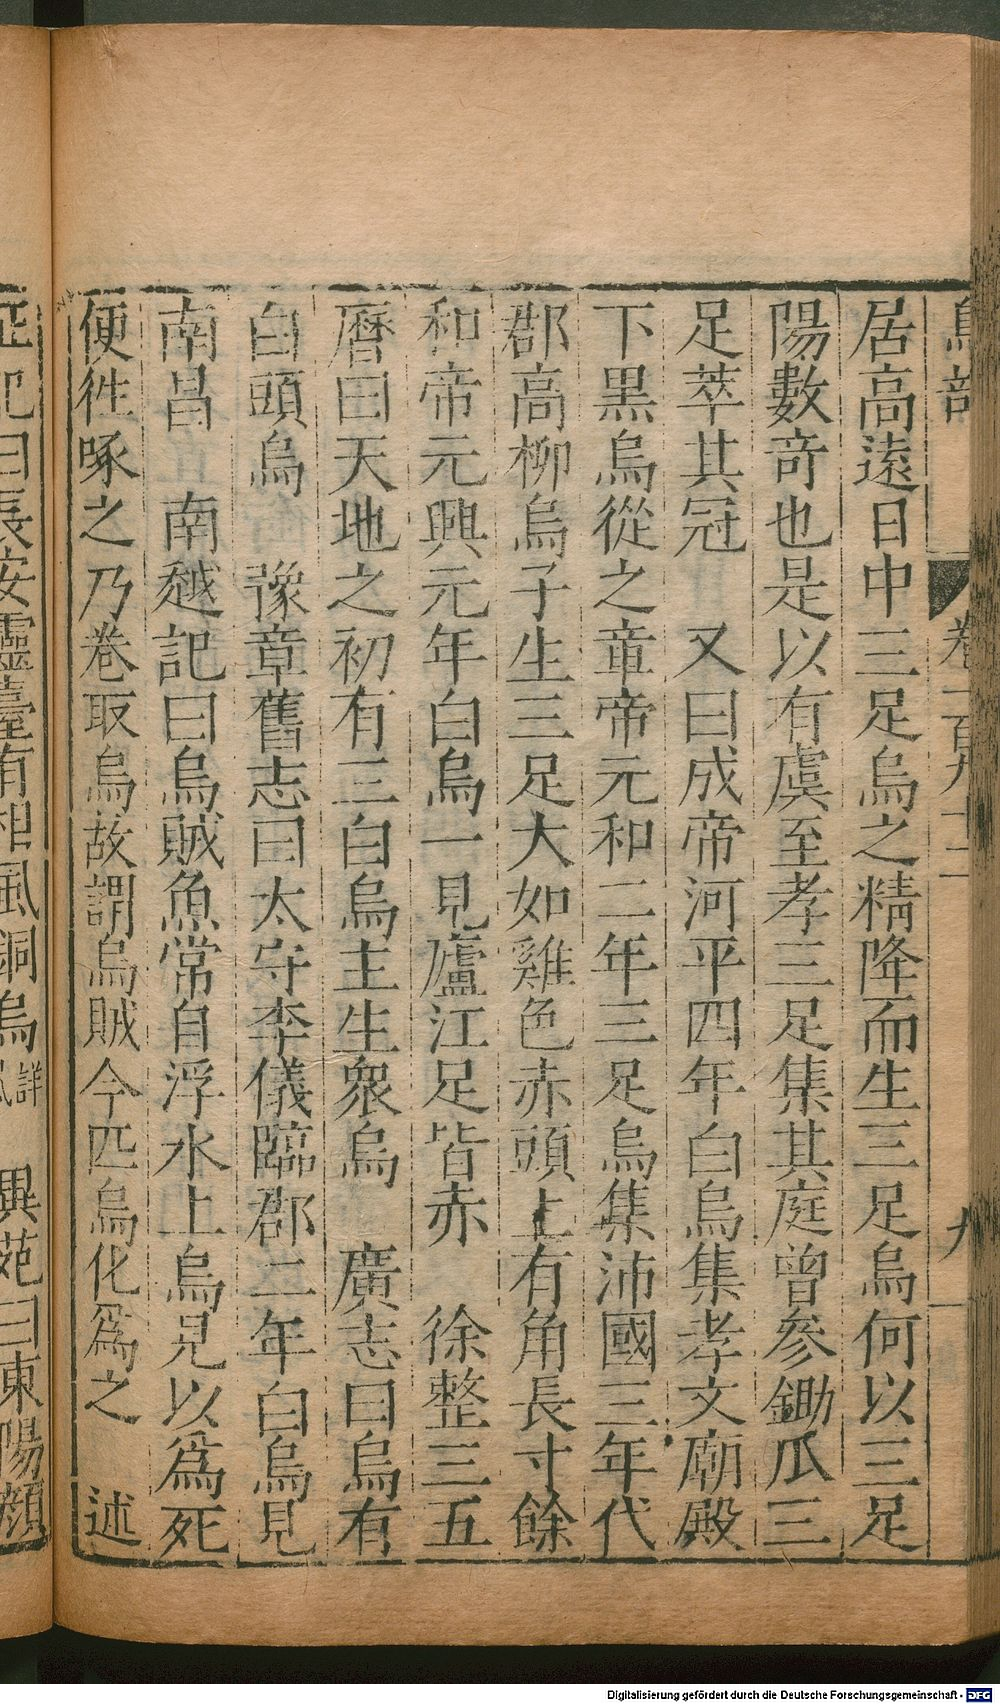 鳥部
卷一百九十二
九
居高遠日中三足烏之精降而生三足烏何以三足
陽數竒也是以有虞至孝三足集其庭曾參鋤瓜三
足萃其冠　又曰成帝河平四年白烏集孝文廟殿
下黑烏從之章帝元和二年三足烏集沛國三年代
郡高柳烏子生三足大如雞色赤頭上有角長寸餘
和帝元興元年白烏一見廬江足皆赤　徐整三五
曆曰天地之初有三白烏主生衆烏　廣志曰烏有
白頭烏　豫章舊志曰太守李儀臨郡二年白烏見
南昌　南越記曰烏賊魚常自浮水上烏見以爲死
便徃啄之乃卷取烏故謂烏賊今匹烏化爲之　述
征記曰長安靈臺有相風銅烏詳風　異苑曰東陽顔
Digitalisierung gefördert durch die Deutsche Forschungsgemeinschaft - DFG